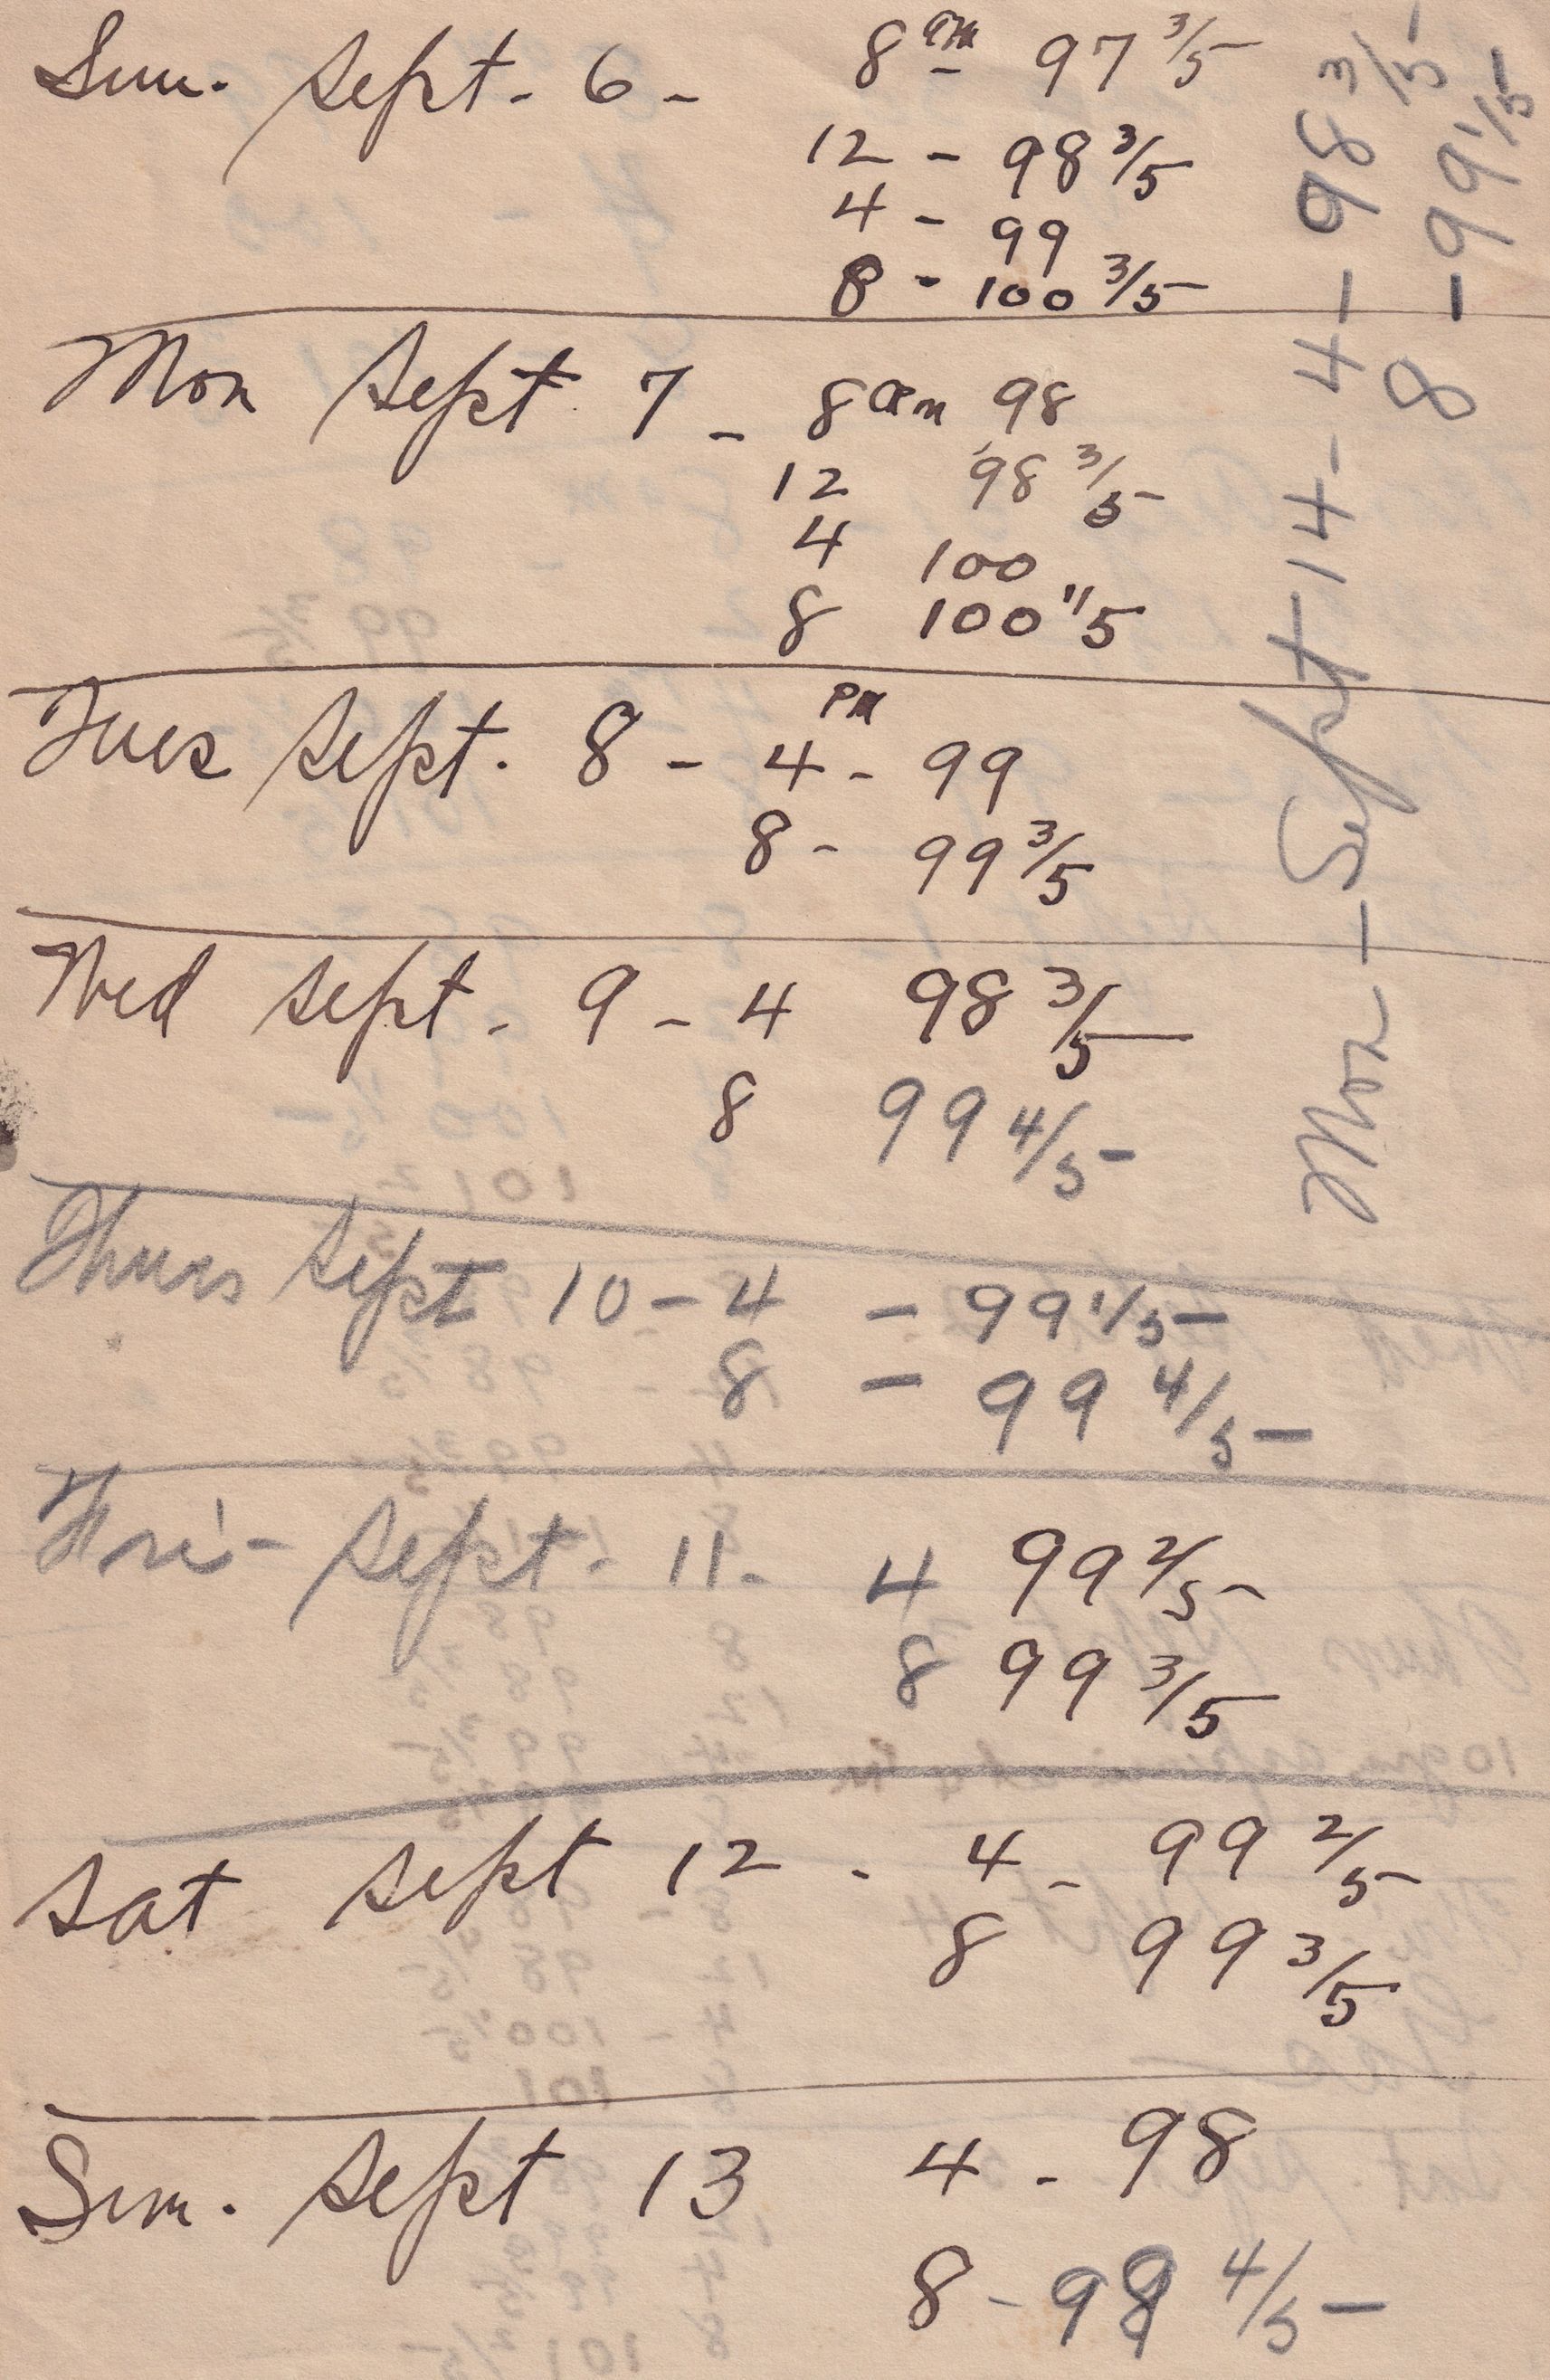 Sun. Sept. 6 - 8 am - 97 3/5
12 - 98 3/5
4 - 99
8 - 100 3/5
Mon Sept 7 - 8 am 98
12 98 3/5
4 100
8 100 1/5
Tues Sept. 8 - 4 PM - 99
8 - 99 3/5
Wed Sept. 9 - 4 98 3/5
8 99 4/5
Thurs Sept 10 - 4 - 99 1/5
8 - 99 4/5
Fri - Sept. 11 - 4 99 2/5
8 99 3/5
Sat Sept 12 - 4 - 99 2/5
8 99 3/5
Sun. Sept 13 4 - 98
8 - 4/5
Mon - Sept 14 - 4 - 98 3/5
8 - 99 1/5